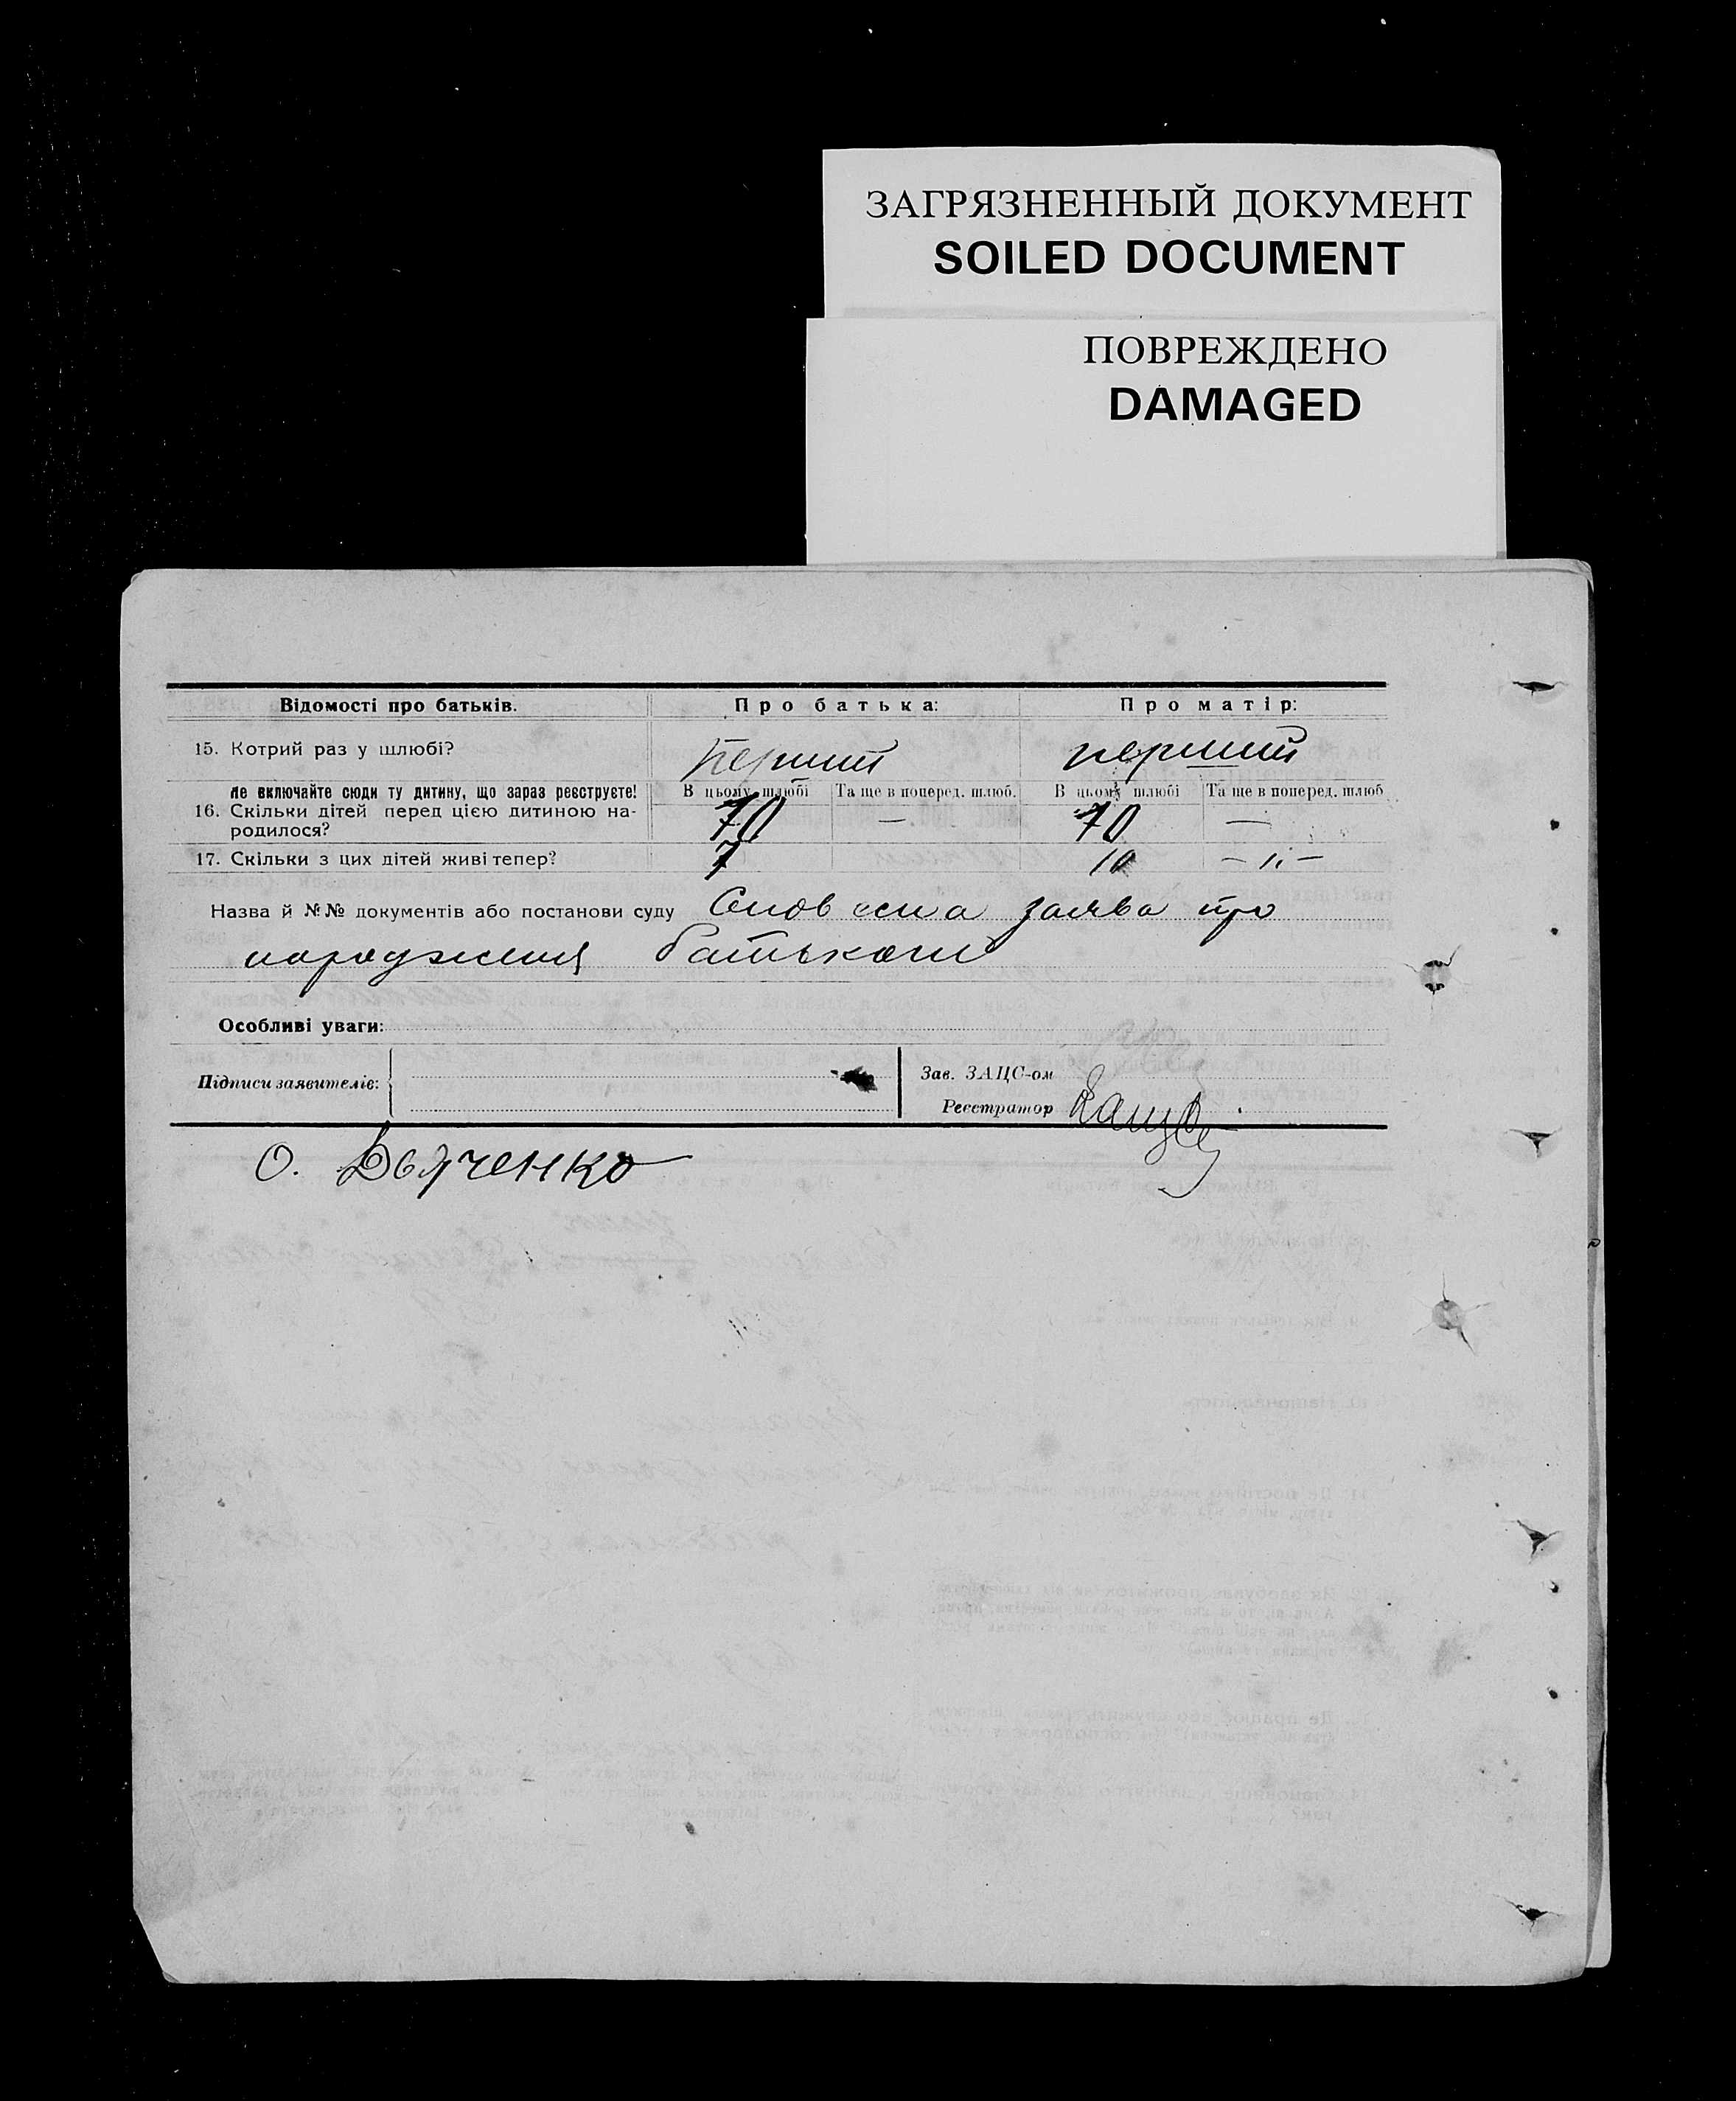 ЗАГРЯЗНЕННЫЙ ДОКУМЕНТ
SOILED DOCUMENT
ПОВРЕЖДЕНО
DAMAGED
Відомості про батьків. Про батька: Про матір:
15. Котрий раз у шлюбі? перший перший
не включайте сюди ту дитину, що зараз реєструєте! В цьому шлюбі Та ще в поперед. шлюб. В цьому шлюбі Та ще в поперед. шлюб
16. Скільки дітей перед цією дитиною на-
родилося? 10 — 10 —
17. Скільки з цих дітей живі тепер? 7 10 — 11 —
Назва й №№ документів або постанови суду Словесна заява про
народження батьком
Особливі уваги:
Підписи заявителів: Зав. ЗАЦС-ом
Реєстратор
О. Дьяченко